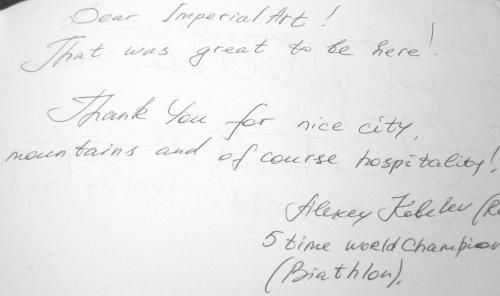 Dear Imperial Art!
That was great to be here!
Thank You for nice city,
mountains and of course hospitality!
Alexey Kobelev (R
5 time world Champion
(Biathlon).